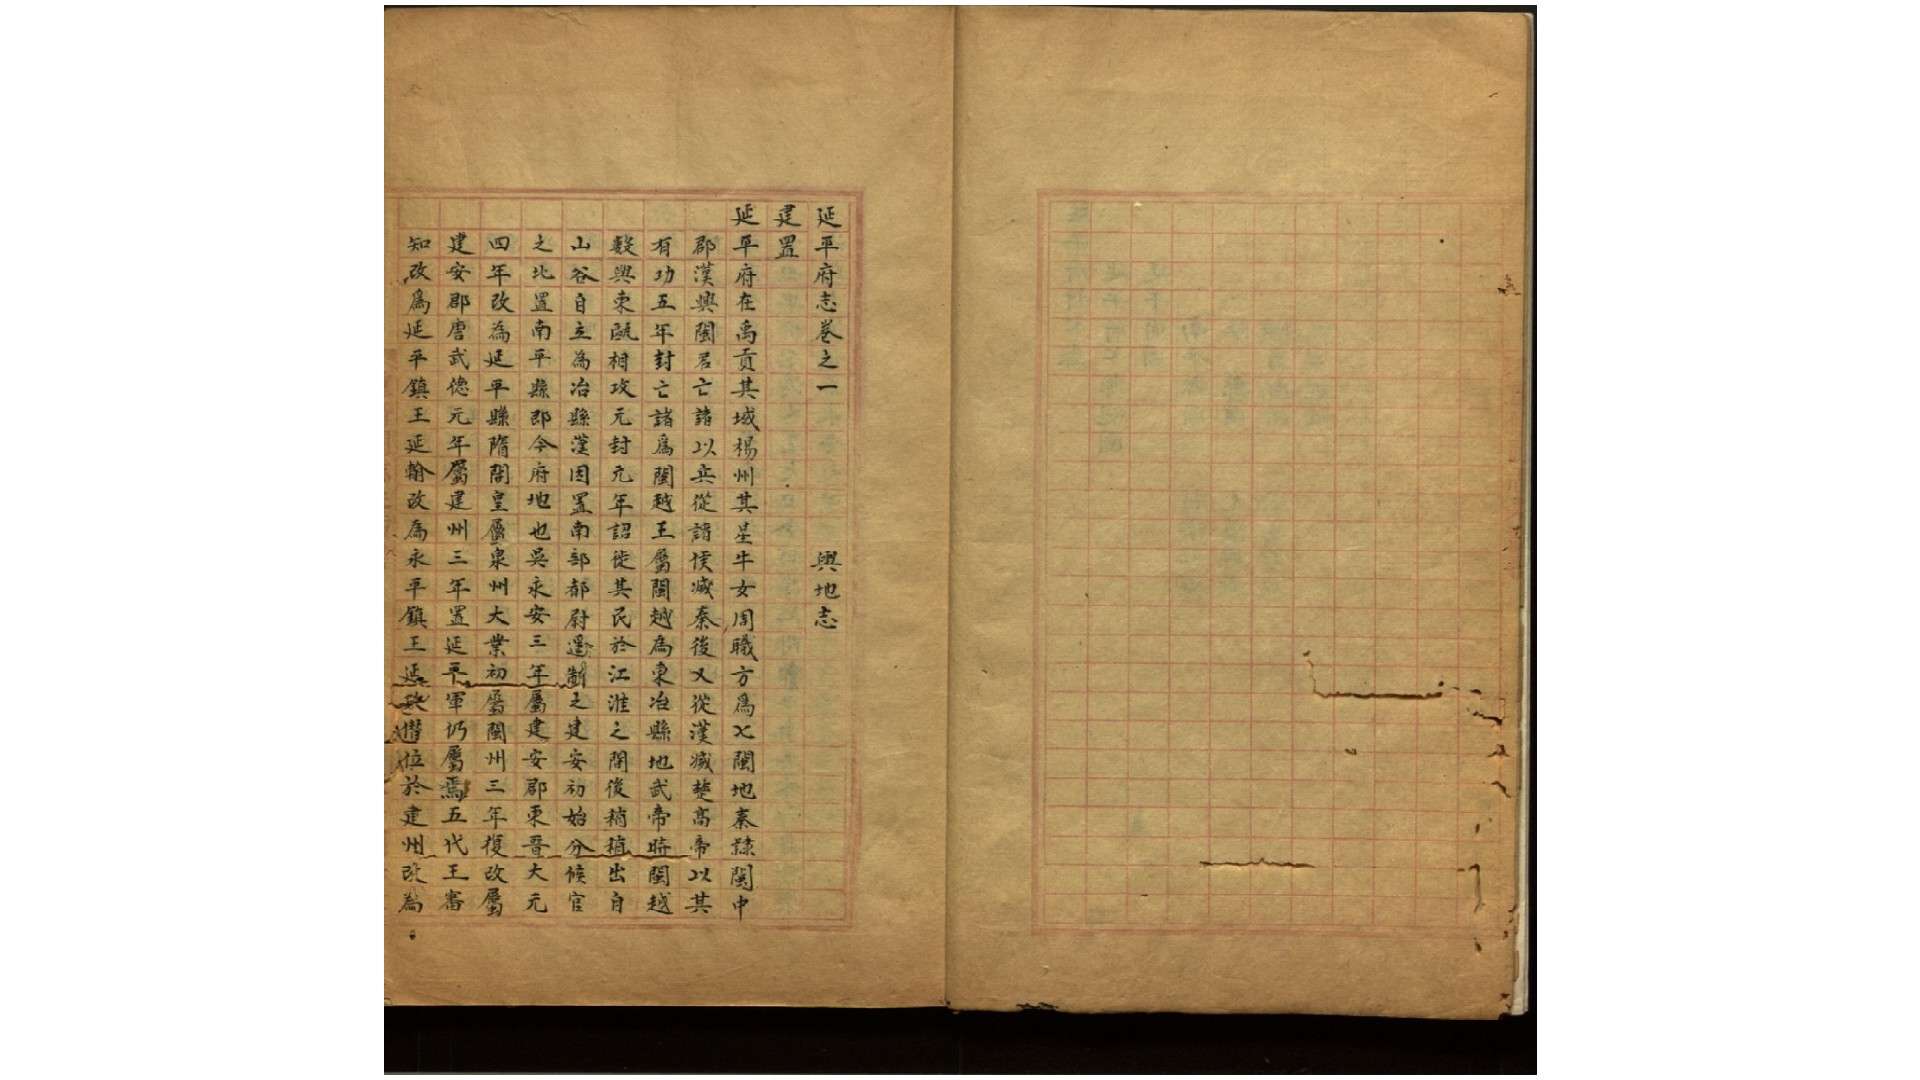 延平府志卷之一 輿地志
建置
延平府在禹貢其域楊州其星牛女周職方為七閩地秦隸閩中
郡漢興閩君亡諸以兵從諸侯滅秦後又從漢滅楚高帝以其
有功五年封亡諸為閩越王屬閩越為東冶縣地武帝時閩越
數與東甌相攻元封元年詔徙其民於江淮之間後稍稍出自
山谷自立為冶縣漢因置南部都尉邊制之建安初始分候官
之北置南平縣即今府地也吳永安三年屬建安郡東晉大元
四年改為延平縣隋開皇屬泉州大業初屬閩州三年復改屬
建安郡唐武德元年屬建州三年置延平軍仍屬焉五代王審
知改為延平鎮王延翰改為永平鎮王延政僣位於建州改為